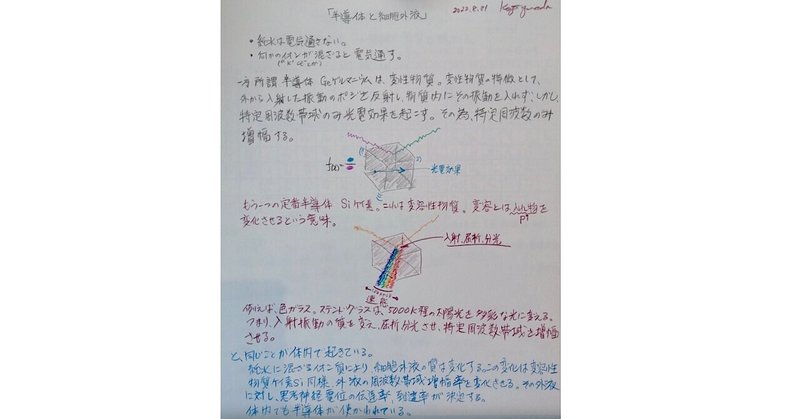 「半導体と細胞外液」
2022.8.21
・純水は電気通さない。
・何かのイオンが混ざると電気通す。
一方所謂半導体Geゲルマニウムは、変性物質。変性物質の特徴として、
外から入射した振動のポジを反射し、物質内にその振動を入れず、しかし、
特定周波数帯域のみ光電効果を起こす。その為、特定周波数のみ
増幅する。
f(x)=
光電効果
もう一つの定番半導体Siケイ素。これは変容性物質。変容とは入れ物を
変化させるという意味。
入射、屈折、分光
連続
例えば、色ガラス。ステンドグラスは、5000K程の太陽光を多彩な光に変える。
つまり、入射振動の質を変え、屈折分光させ、特定周波数帯域を増幅
させる。
と、同じことが体内で起きている。
純水に混ざるイオン質により、細胞外液の質は変化する。この変化は変容性
物質ケイ素Si同様、外液の周波数帯域増幅率を変化させる。その外液
に対し、神経電位の伝達率、到達率が決定する。
体内でも半導体が使われている。